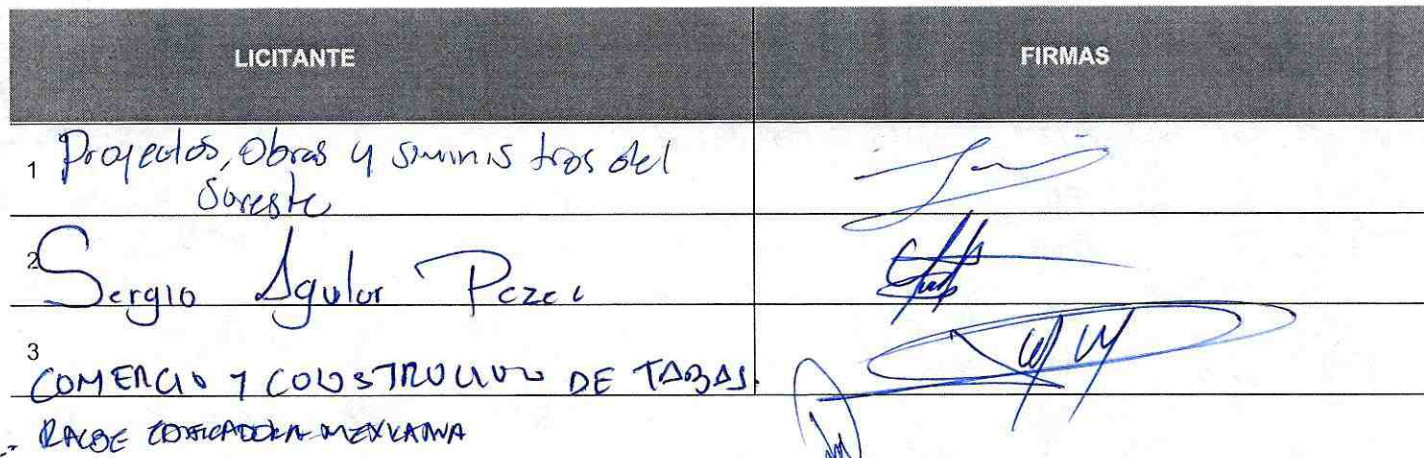 LICITANTE FIRMAS
1 Proyectos, Obras y suministros del
Sureste
2 Sergio Aguilar Perez
3
COMERCIO Y CONSTRUCCION DE TABAS.
MEXICANA